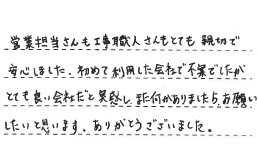 営業担当さんも工事職人さんもとても親切で
安心しました。初めて利用した会社で不安でしたが
とても良い会社だと実感し、また何かありましたらお願い
したいと思います。ありがとうございました。